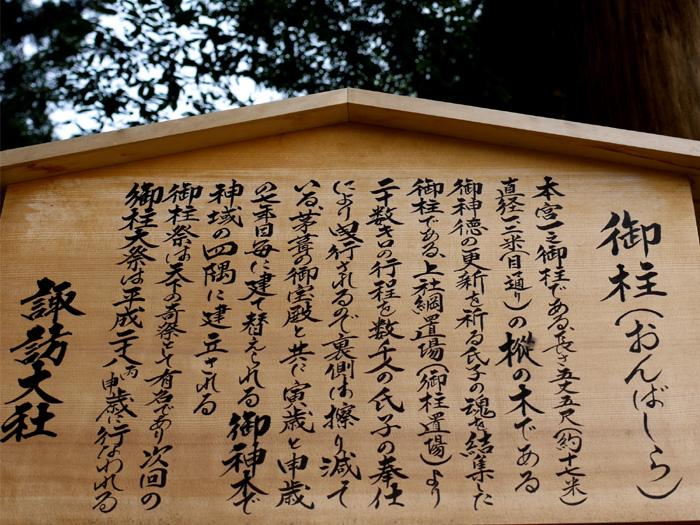 御柱(おんばしら)
本宮一之御柱である、長さ五丈五尺(約十七米)
直径一二米(目通り)の樅の木である
御神徳の更新を祈る氏子の魂を結集した
御柱である、上社綱置場(御柱置場)より
二十数キロの行程を数千人の氏子の奉仕
により曳行されるので裏側は擦り減って
いる、茅葺の御宝殿と共に寅歳と申歳
の七年目毎に建て替えられる御神木で
神域の四隅に建立される
御柱祭は天下の奇祭として有名であり次回の
御柱大祭は平成二十八丙申歳に行なわれる
諏訪大社